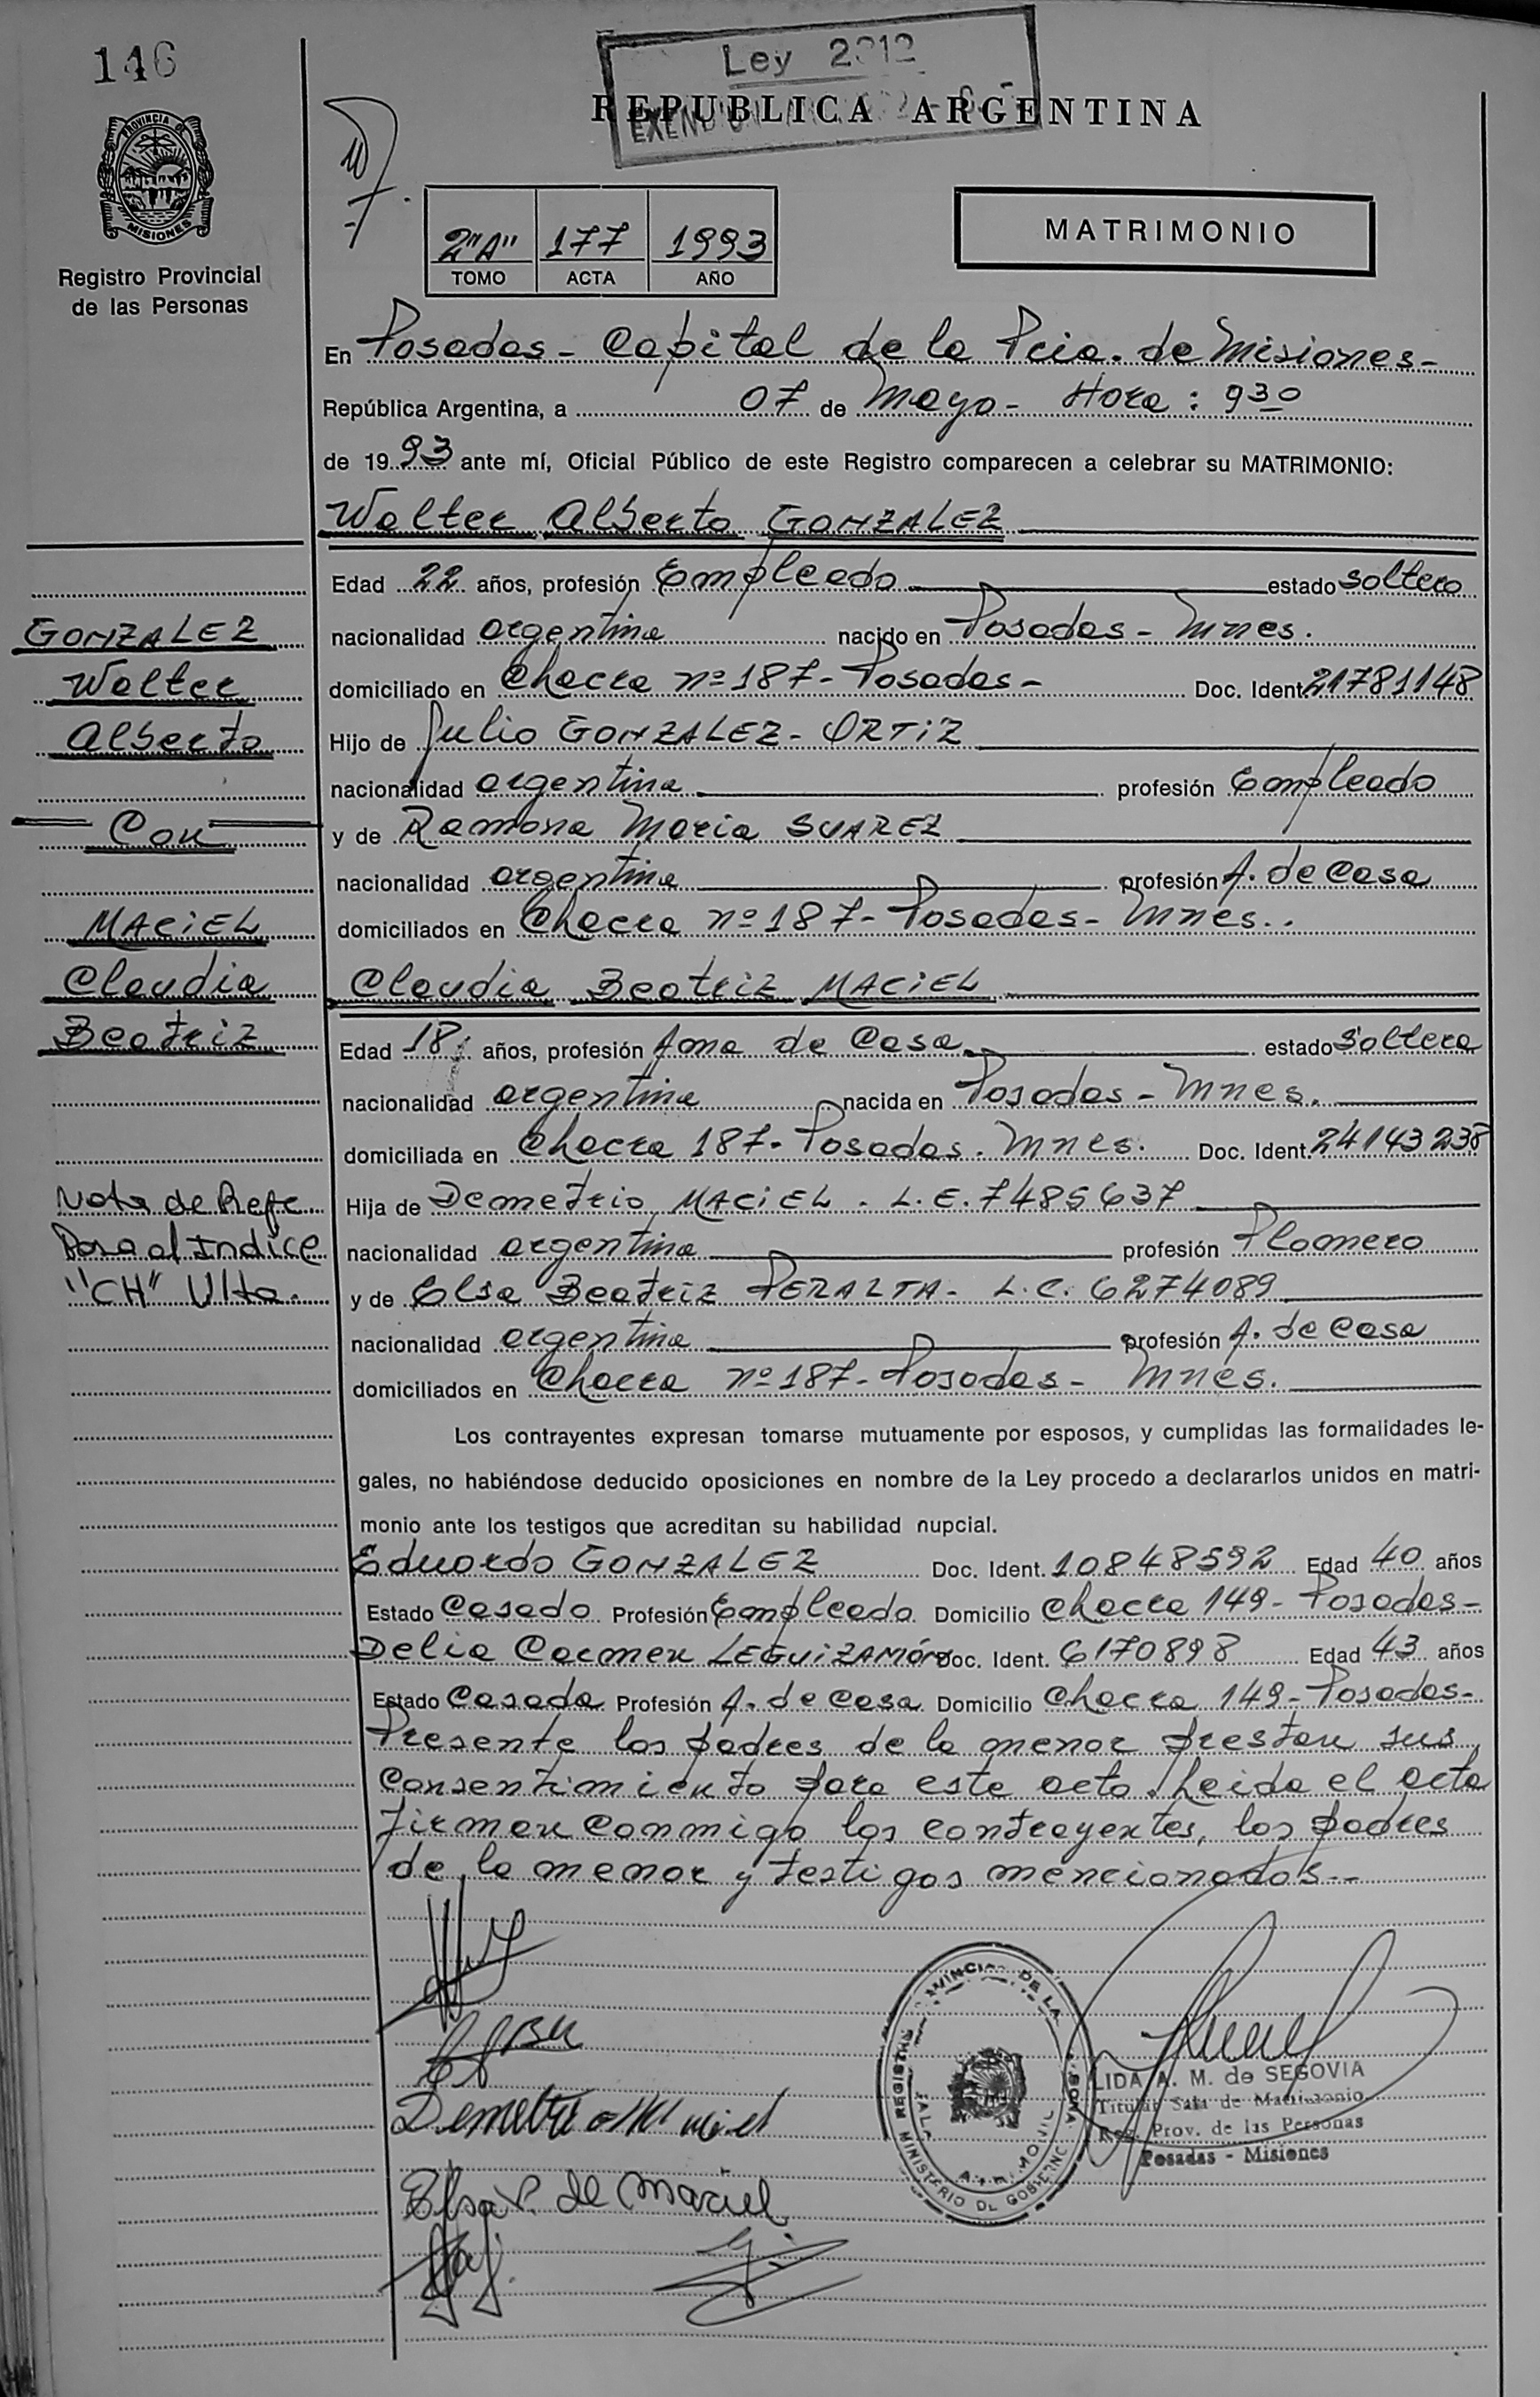 146
Ley 2312
REPUBLICA ARGENTINA
PROVINCIA DE
MISIONES
Registro Provincial
de las Personas
2"A" 177 1993
TOMO ACTA AÑO
MATRIMONIO
En Posadas - Capital de la Pcia. de Misiones -
República Argentina, a 07 de Mayo - Hora: 930
de 1993 ante mí, Oficial Público de este Registro comparecen a celebrar su MATRIMONIO:
Walter Alberto GONZALEZ
Edad 22 años, profesión Empleado estado soltero
nacionalidad argentina nacido en Posadas - Mnes.
domiciliado en Chacra nº 187 - Posadas - Doc. Ident. 21781148
Hijo de Julio GONZALEZ - ORTIZ
nacionalidad argentina profesión Empleado
y de Ramona Maria SUAREZ
nacionalidad argentina profesión A. de Casa
domiciliados en Chacra nº 187 - Posadas - Mnes..
Claudia Beatriz MACIEL
Edad 18 años, profesión Ama de Casa estado Soltera
nacionalidad argentina nacida en Posadas - Mnes.
domiciliada en Chacra 187 - Posadas. Mnes. Doc. Ident. 24143238
Hija de Demetrio MACIEL - L.E. 7485637
nacionalidad argentina profesión Plomero
y de Elsa Beatriz PERALTA - L.C. 6274089
nacionalidad argentina profesión A. de Casa
domiciliados en Chacra nº 187 - Posadas - Mnes.
GONZALEZ
Walter
Alberto
Con
MACIEL
Claudia
Beatriz
Nota de Refe
Pasa al Indice
"CH" Vlta.
Los contrayentes expresan tomarse mutuamente por esposos, y cumplidas las formalidades le-
gales, no habiéndose deducido oposiciones en nombre de la Ley procedo a declararlos unidos en matri-
monio ante los testigos que acreditan su habilidad nupcial.
Eduardo GONZALEZ Doc. Ident. 10848592 Edad 40 años
Estado Casado Profesión Empleado Domicilio Chacra 149 - Posadas -
Delia Carmen LEGUIZAMÓN Doc. Ident. 6170898 Edad 43 años
Estado Casada Profesión A. de Casa Domicilio Chacra 149 - Posadas -
Presente los padres de la menor prestan sus
Consentimiento para este acto. Leida el acta
firman Conmigo los contrayentes, los padres
de la menor y testigos mencionados --
Elsa P. de Maciel
LIDA A. M. de SEGOVIA
Titular Sala de Matrimonio
Reg. Prov. de las Personas
Posadas - Misiones